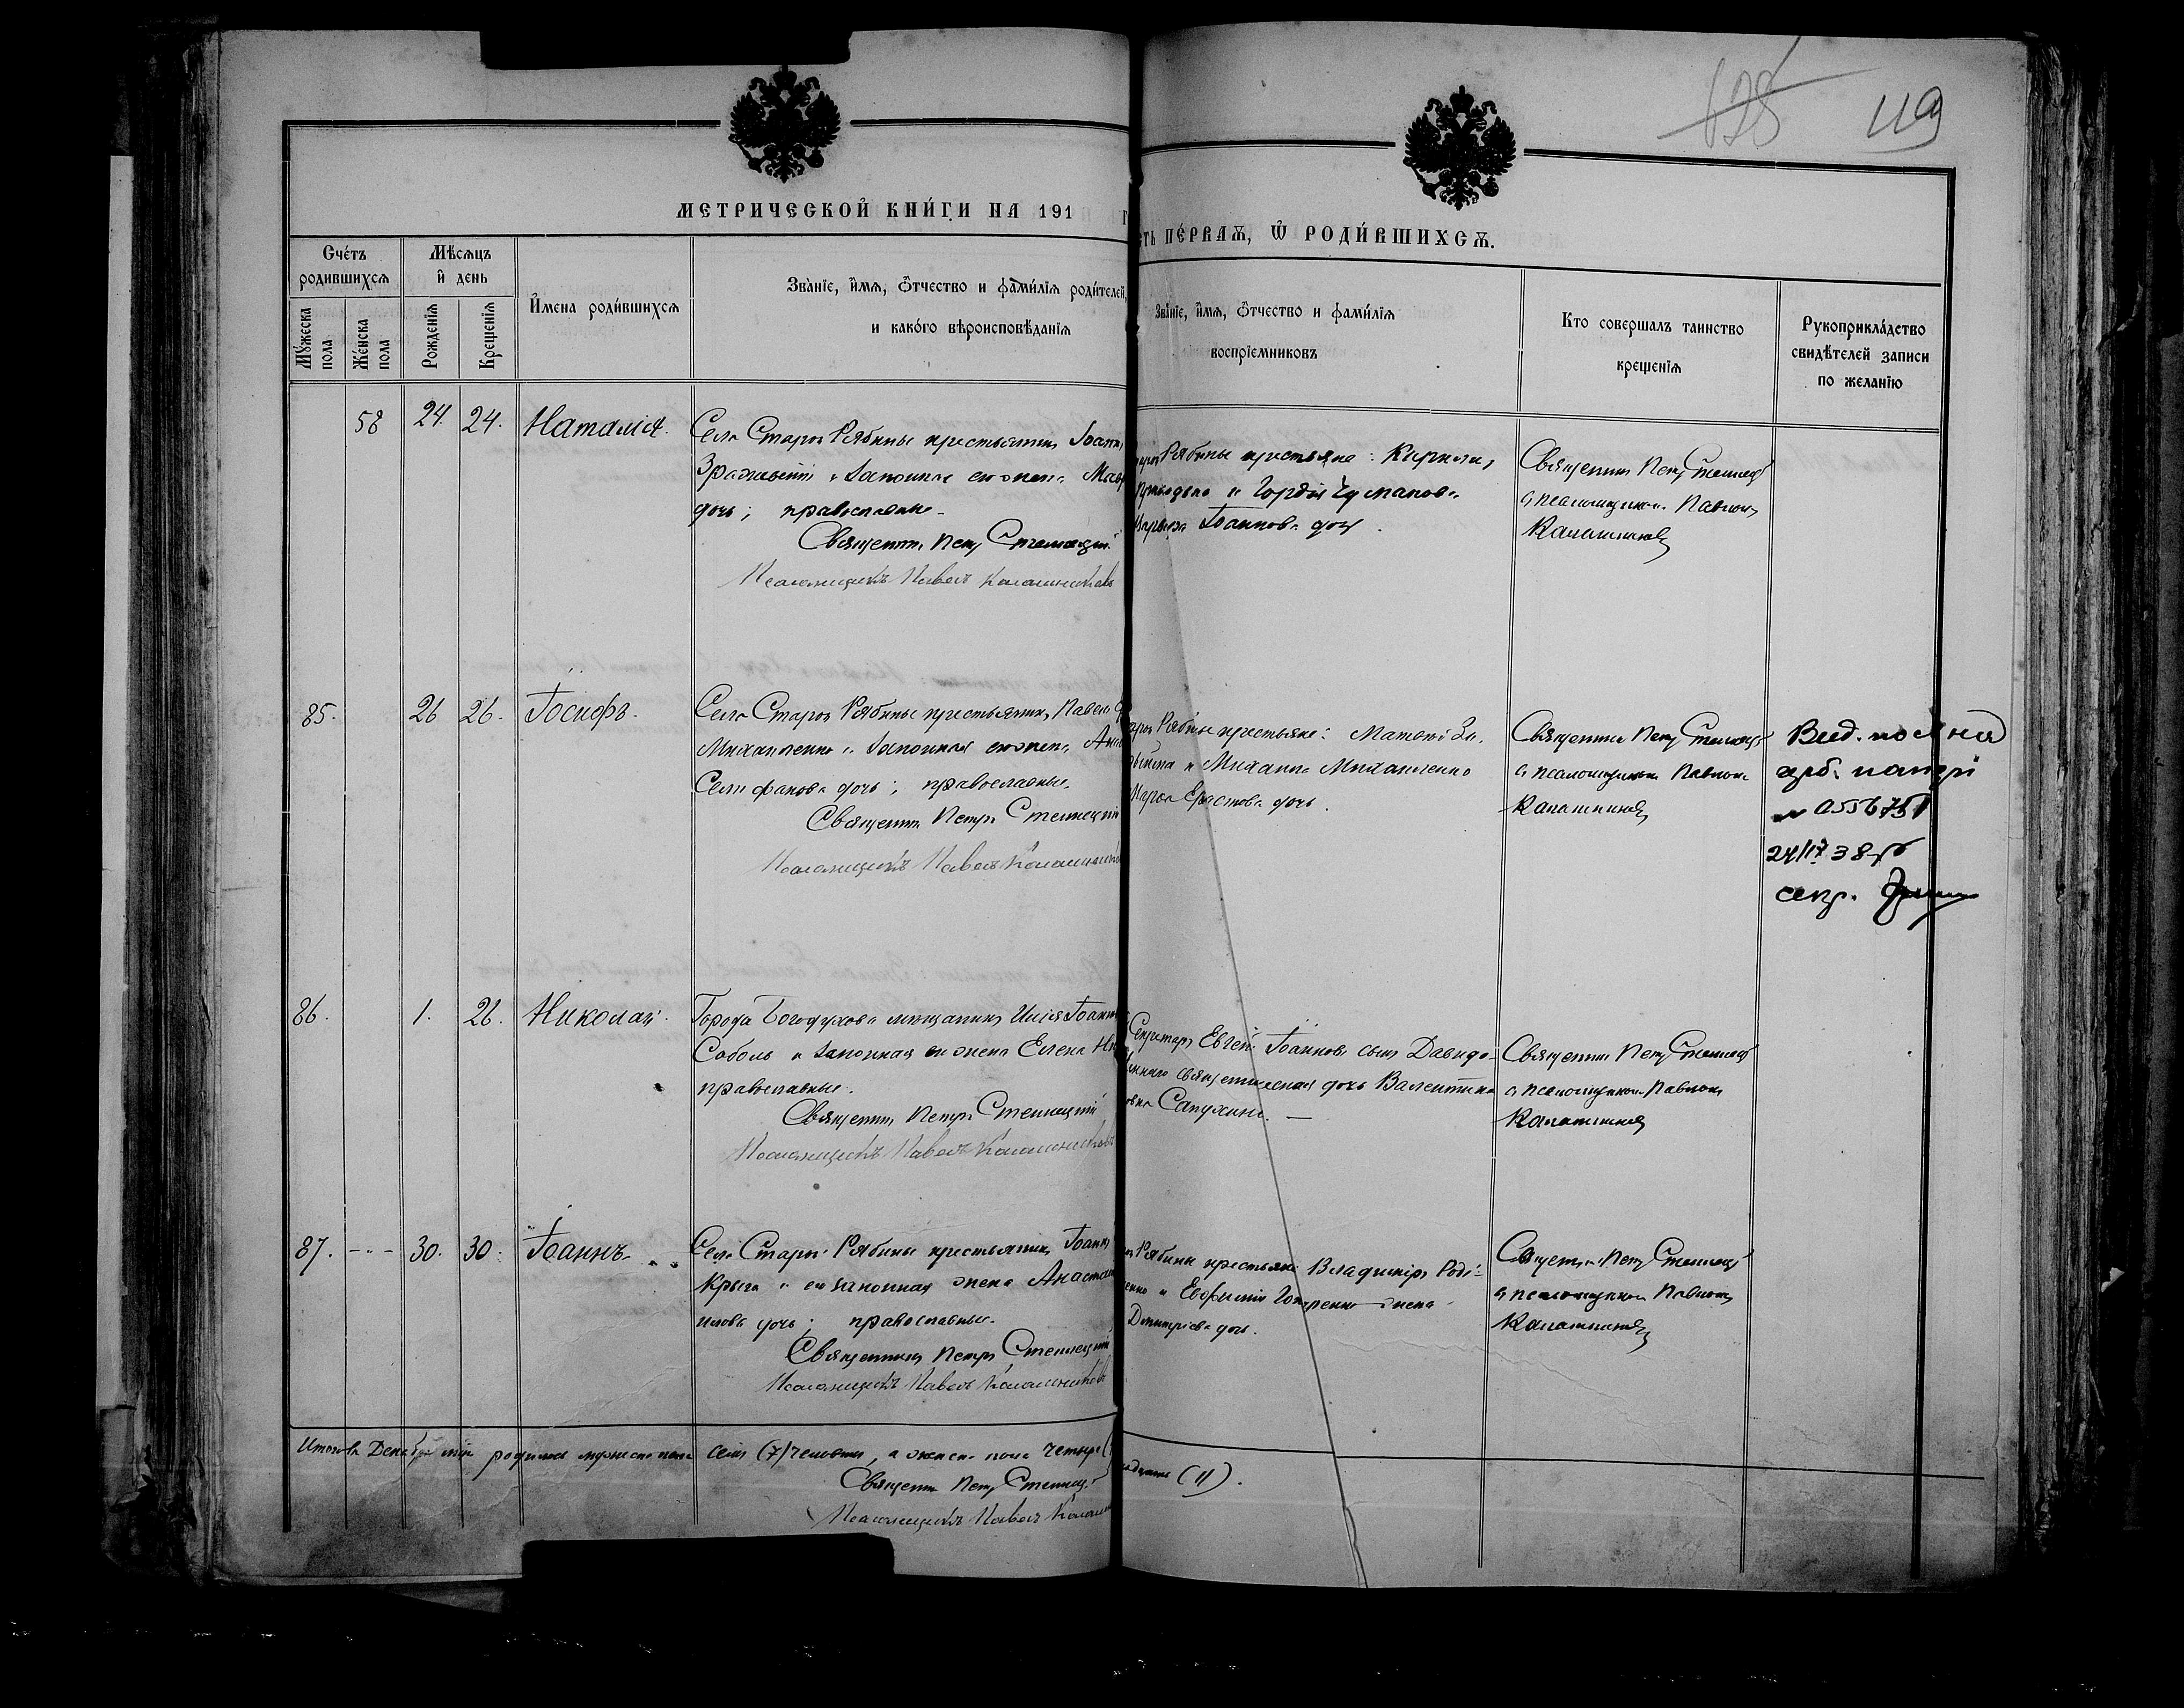 128 119
МЕТРИЧЕСКОЙ КНИ́ГИ НА 191
сть пе́рваѧ, ѿ роди́вшихсѧ.
Сче́тъ родившихсѧ
Му́жеска пола
Же́нска пола
Мѣ́сѧцъ и҆ день
Рожденїѧ
Крещенїѧ
И҆мена роди́вшихсѧ
Зва́нїе, и҆мѧ, ѻ҆тчество и фами́лїѧ роди́телей,
и како́го вѣроисповѣ́данїѧ
Зва́нїе, и҆мѧ, ѻ҆тчество и фами́лїѧ
воспрїемниковъ
Кто совершалъ таинство
крещенїѧ
Рукоприкла́дство
свидѣ́телей записи
по жела́нїю
58 24. 24. Наталія.
Села Старой Рябины крестьянинъ Іоаннъ
и законная его жена
дочь; православные.
Священникъ Петръ Стеллецкій
Псаломщикъ Павелъ Калашниковъ
Рябины крестьяне: Кирилъ
и Гордія Чумакова
Іоаннова дочь.
Священникъ Петръ Стеллецкій
съ псаломщикомъ Павломъ
Калашниковъ
85. 26 26. Іосифъ.
Села Старой Рябины крестьянинъ Павелъ
Михайленко и законная его жена
Селифанова дочь; православные.
Священникъ Петръ Стеллецкій
Псаломщикъ Павелъ Калашниковъ
Рябины крестьяне: Матвѣй
и Михаила Михайленко
Ерастова дочь.
Священникъ Петръ Стеллецкій
съ псаломщикомъ Павломъ
Калашниковъ
Вид. посв на
№ 0556751
секр.
86. 1. 26. Николай.
Города Богодухова мѣщанинъ Илія Іоанн
Соболь и законная его жена Елена
православные.
Священникъ Петръ Стеллецкій
Псаломщикъ Павелъ Калашниковъ
Секретарь Евгеній Іоанновъ сынъ Давидо-
священническая дочь Валентина
Сапухина.
Священникъ Петръ Стеллецкій
съ псаломщикомъ Павломъ
Калашниковъ
87. 30. 30. Іоаннъ.
Села Старой Рябины крестьянинъ Іоаннъ
Крыга и его законная жена Анаста
дочь; православные.
Священникъ Петръ Стеллецкій
Псаломщикъ Павелъ Калашниковъ
Рябины крестьяне Владиміръ Роді-
и Евфимія жена
Димитріева дочь.
Священникъ Петръ Стеллецкій
съ псаломщикомъ Павломъ
Калашниковъ
Итого въ Декабрѣ м-цѣ родилось мужеска пола семь (7) человѣкъ, а женска пола четыре (
(11).
Священникъ Петръ Стеллецкій
Псаломщикъ Павелъ